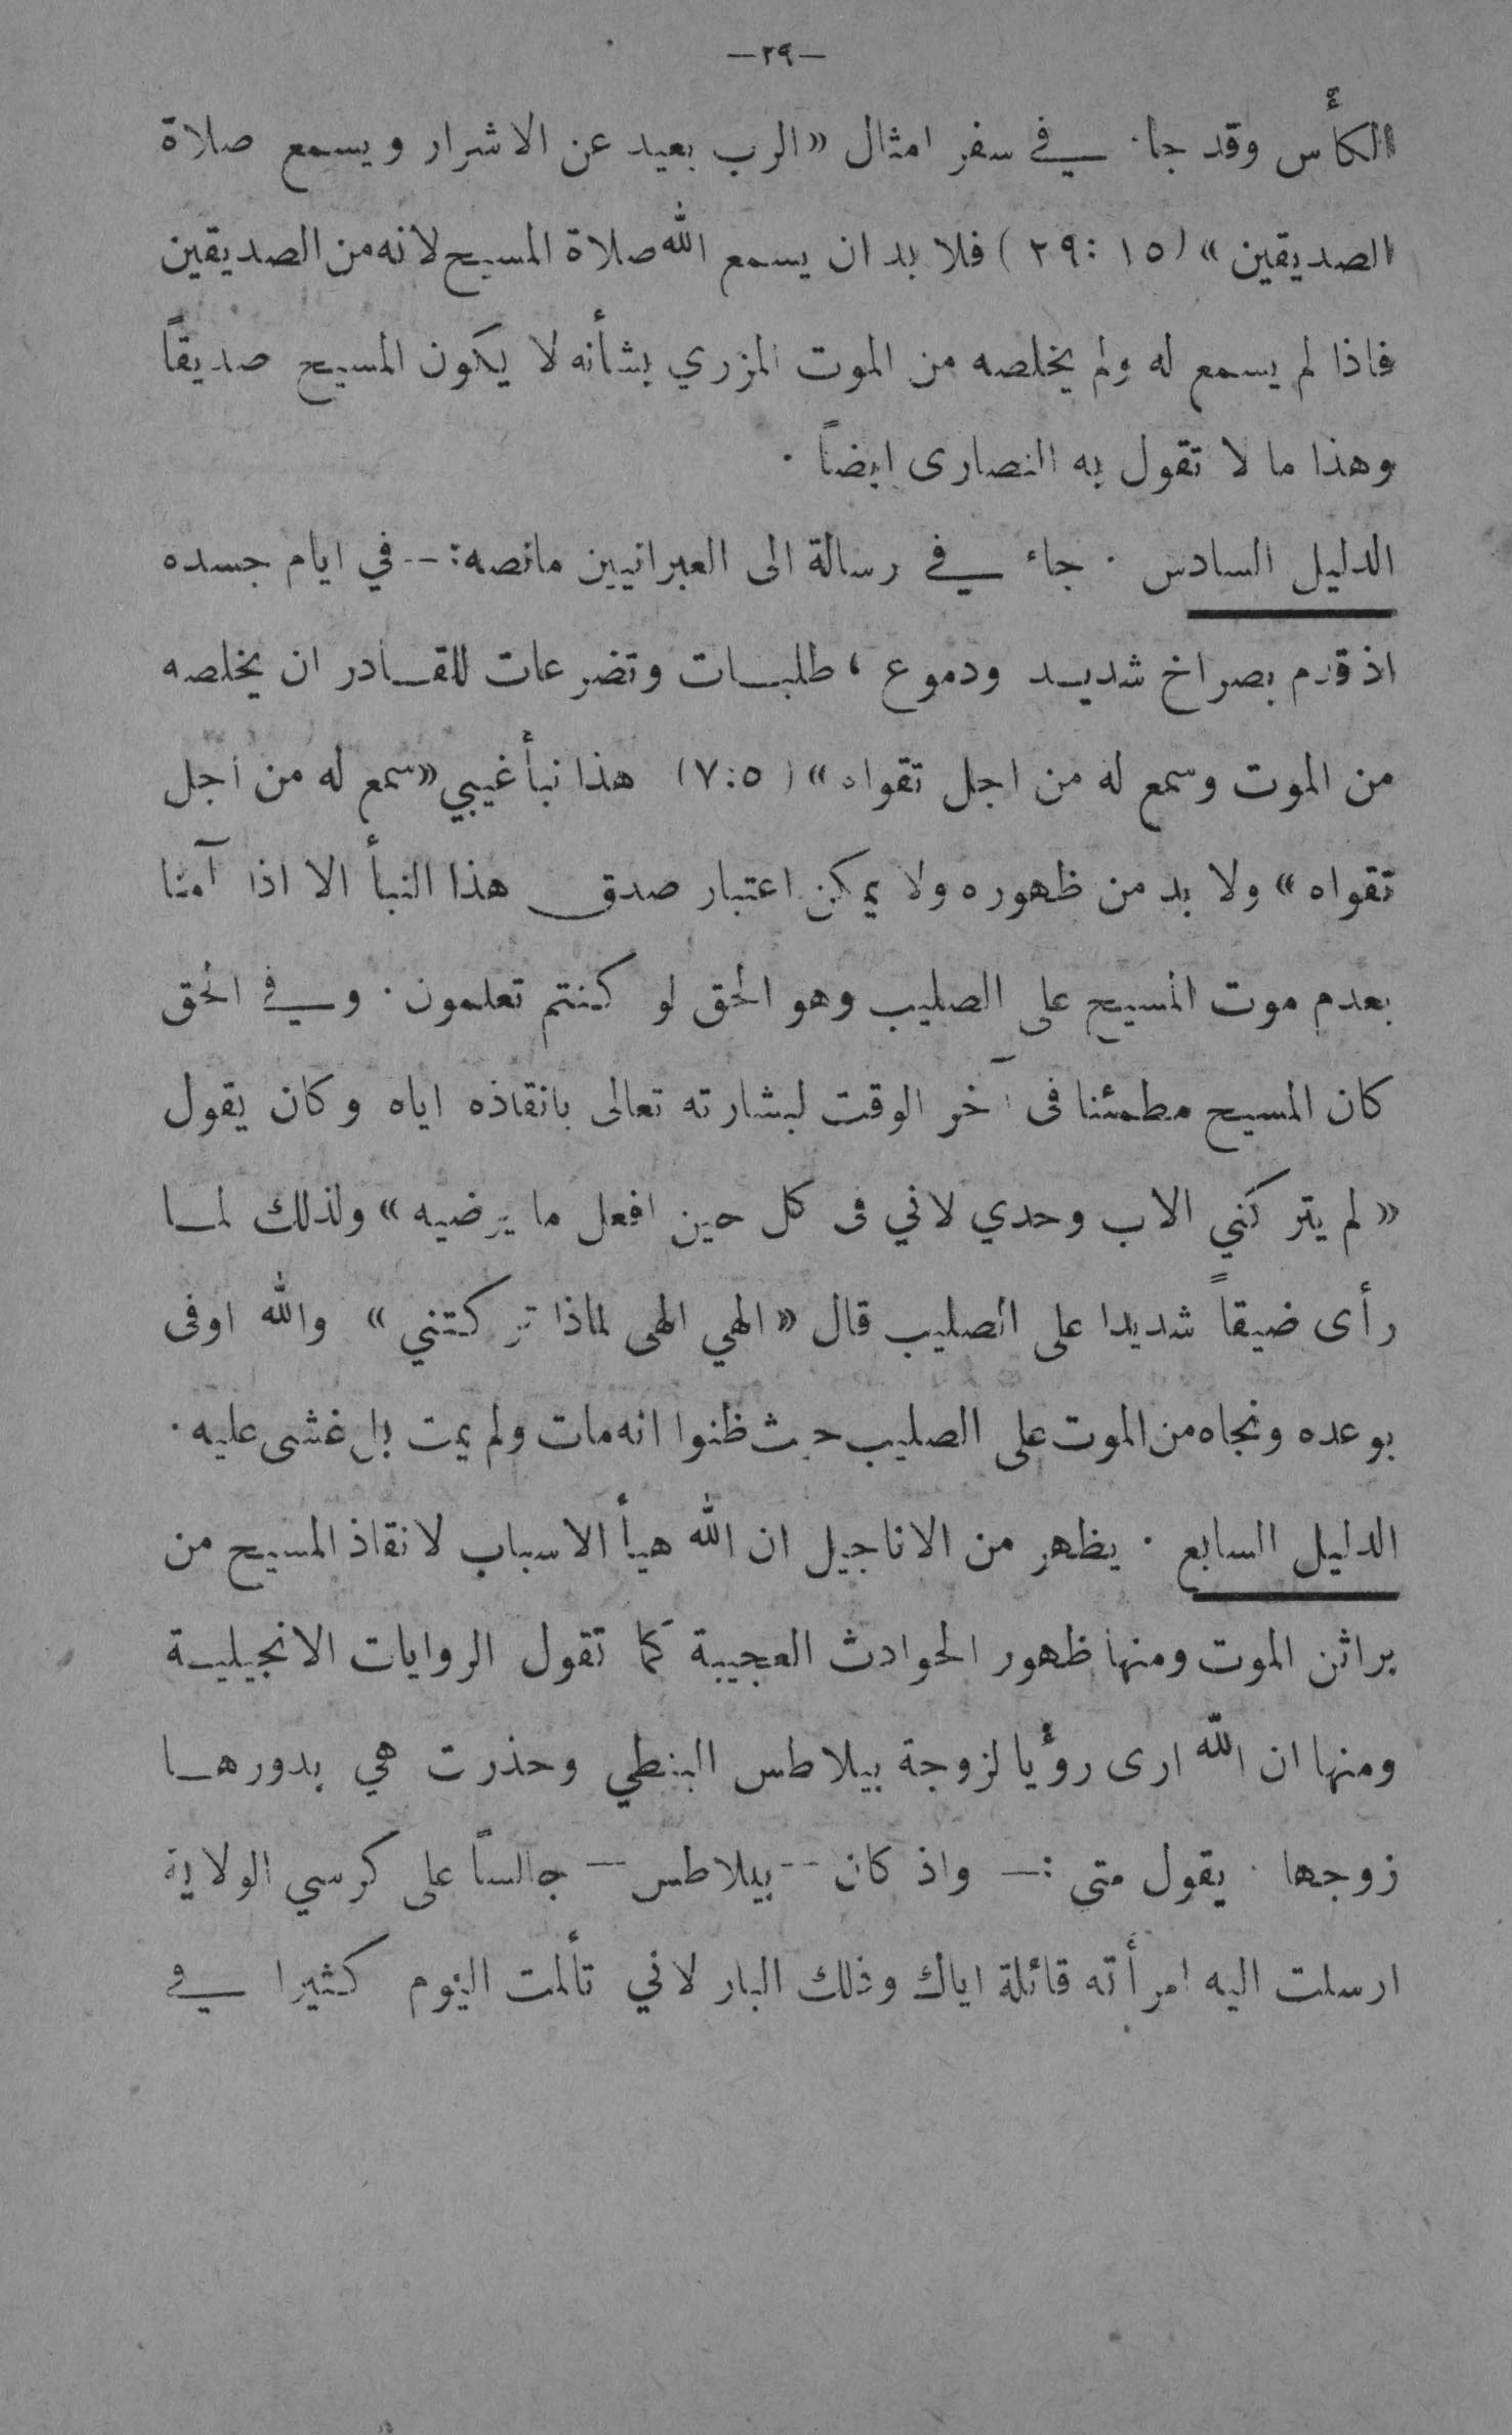 —٢٩—
الكأس وقد جاء في سفر امثال «الرب بعيد عن الاشرار ويسمع صلاة
الصديقين» (١٥ :٢٩) فلا بد ان يسمع الله صلاة المسيح لانه من الصديقين
فاذا لم يسمع له ولم يخلصه من الموت المزري بشأنه لا يكون المسيح صديقاً
وهذا ما لا تقول به النصارى ايضاً .
الدليل السادس . جاء في رسالة الى العبرانيين مانصه :-- في ايام جسده
اذ قدم بصراخ شديد ودموع ، طلبات وتضرعات للقادر ان يخلصه
من الموت وسمع له من اجل تقواه» (٧:٥) هذا نبأ غيبي «سمع له من اجل
تقواه» ولا بد من ظهوره ولا يمكن اعتبار صدق هذا النبأ الا اذا آمنا
بعدم موت المسيح على الصليب وهو الحق لو كنتم تعلمون . وفي الحق
كان المسيح مطمئنا فى آخر الوقت لبشارته تعالى بانقاذه اياه وكان يقول
«لم يتركني الاب وحدي لاني فى كل حين افعل ما يرضيه» ولذلك لما
رأى ضيقاً شديدا على الصليب قال «الهي الهى لماذا تركتني» والله اوفى
بوعده ونجاه من الموت على الصليب حيث ظنوا انه مات ولم يمت بل غشى عليه .
الدليل السابع . يظهر من الاناجيل ان الله هيأ الاسباب لانقاذ المسيح من
براثن الموت ومنها ظهور الحوادث العجيبة كما تقول الروايات الانجيلية
ومنها ان الله ارى رؤيا لزوجة بيلاطس البنطي وحذرت هي بدورها
زوجها . يقول متى :— واذ كان -- بيلاطس — جالساً على كرسي الولاية
ارسلت اليه امرأته قائلة اياك وذلك البار لاني تألمت اليوم كثيرا في